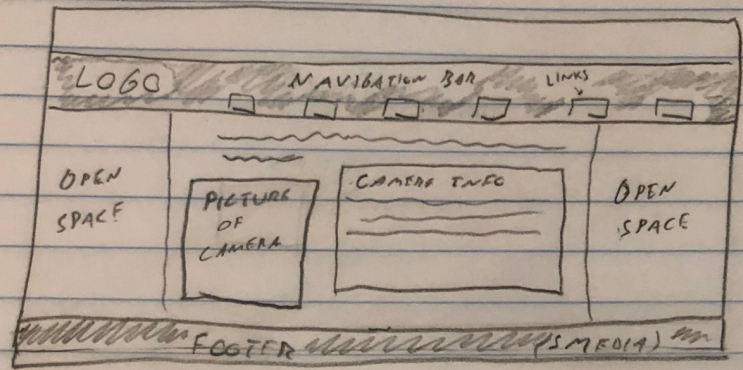 LOGO
NAVIGATION BAR
LINKS
OPEN
SPACE
PICTURE
OF
CAMERA
CAMERA INFO
OPEN
SPACE
FOOTER (SMEDIA)